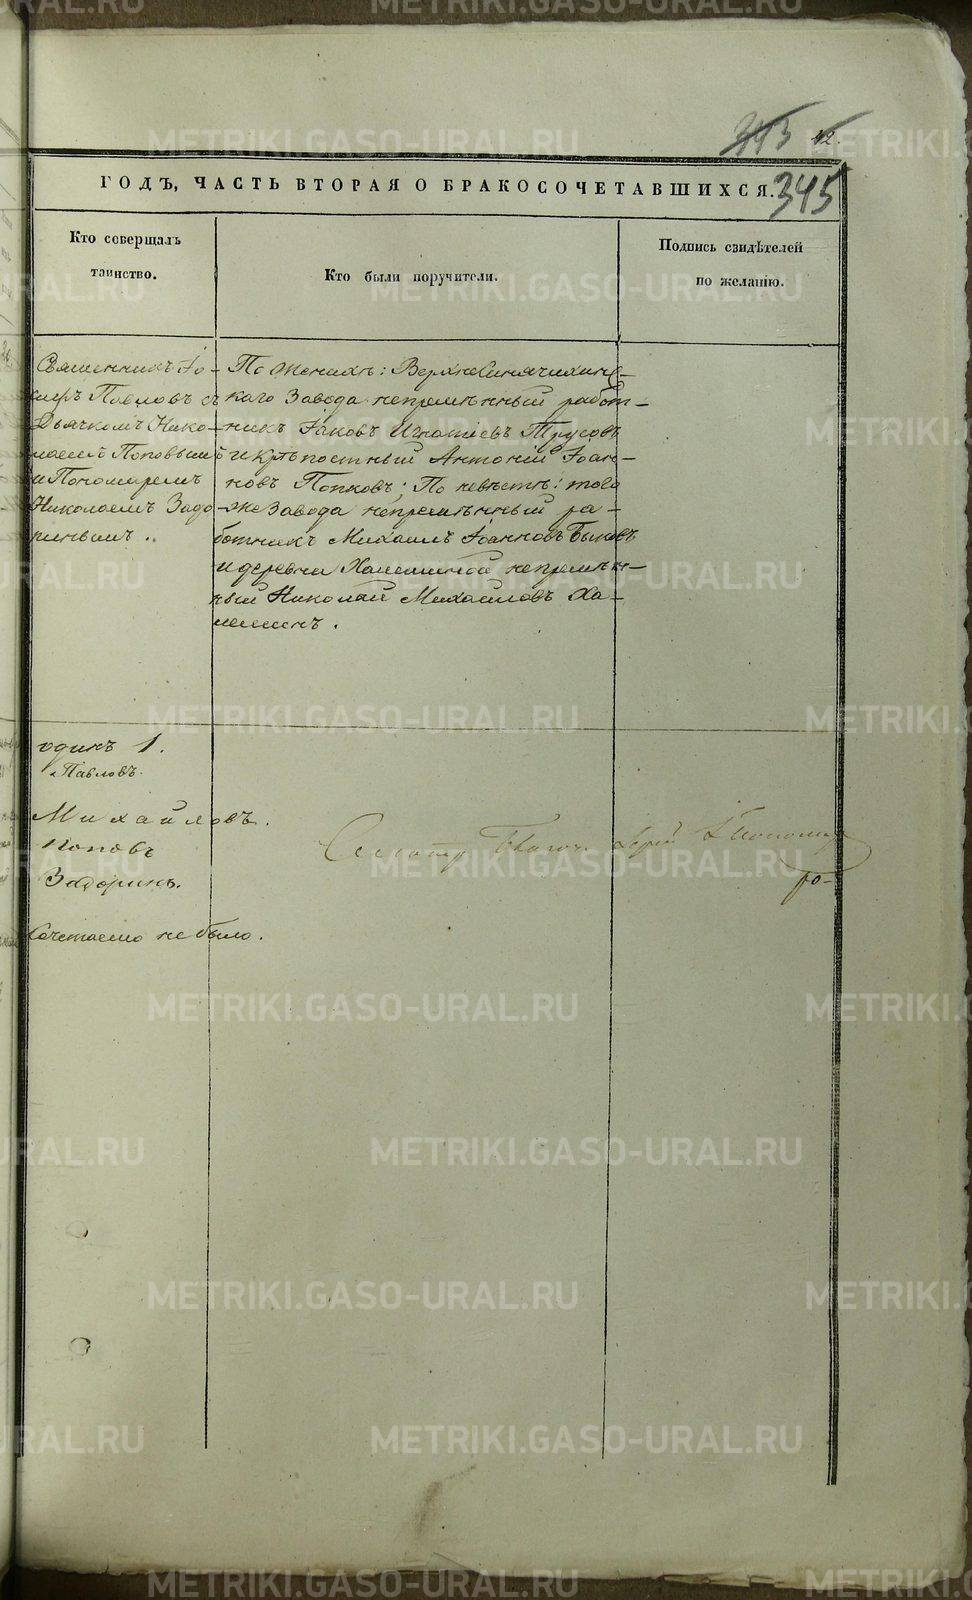 343 42.
ГОДЪ, ЧАСТЬ ВТОРАЯ О БРАКОСОЧЕТАВШИХСЯ.
345
Кто соверщалъ
таинство.
Кто были поручители.
Подпись свидѣтелей
по желанію.
Священникъ Іо-
Павловъ съ
Дьячкомъ Нико-
лаемъ Поповымъ
и Пономаремъ
Николаемъ Задо-
ринымъ.
По женихѣ: Верхнесинячихинс-
каго Завода непремѣнный работ-
никъ Іаковъ Игнатіевъ Трусовъ
и Крѣпостный Антоній Іоан-
новъ Попковъ; По невѣстѣ: того
же Завода непремѣнный ра-
ботникъ Михаилъ Іоанновъ Быковъ
и деревни непремѣн-
ный Николай Михаиловъ Ха-
одинъ 1.
Павловъ.
Михайловъ.
Поповъ
Задоринъ.
Сочетаемо не было.
METRIKI.GASO-URAL.RU